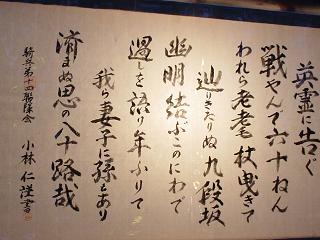 英霊に告ぐ
戦やんで六十ねん
われら老耄杖曳きて
辿りきたりぬ九段坂
幽明結ぶこのにわで
過を語り年ふりて
我ら妻子に孫もあり
済まぬ思の八十路哉
騎兵第十四聯隊会
小林仁謹書